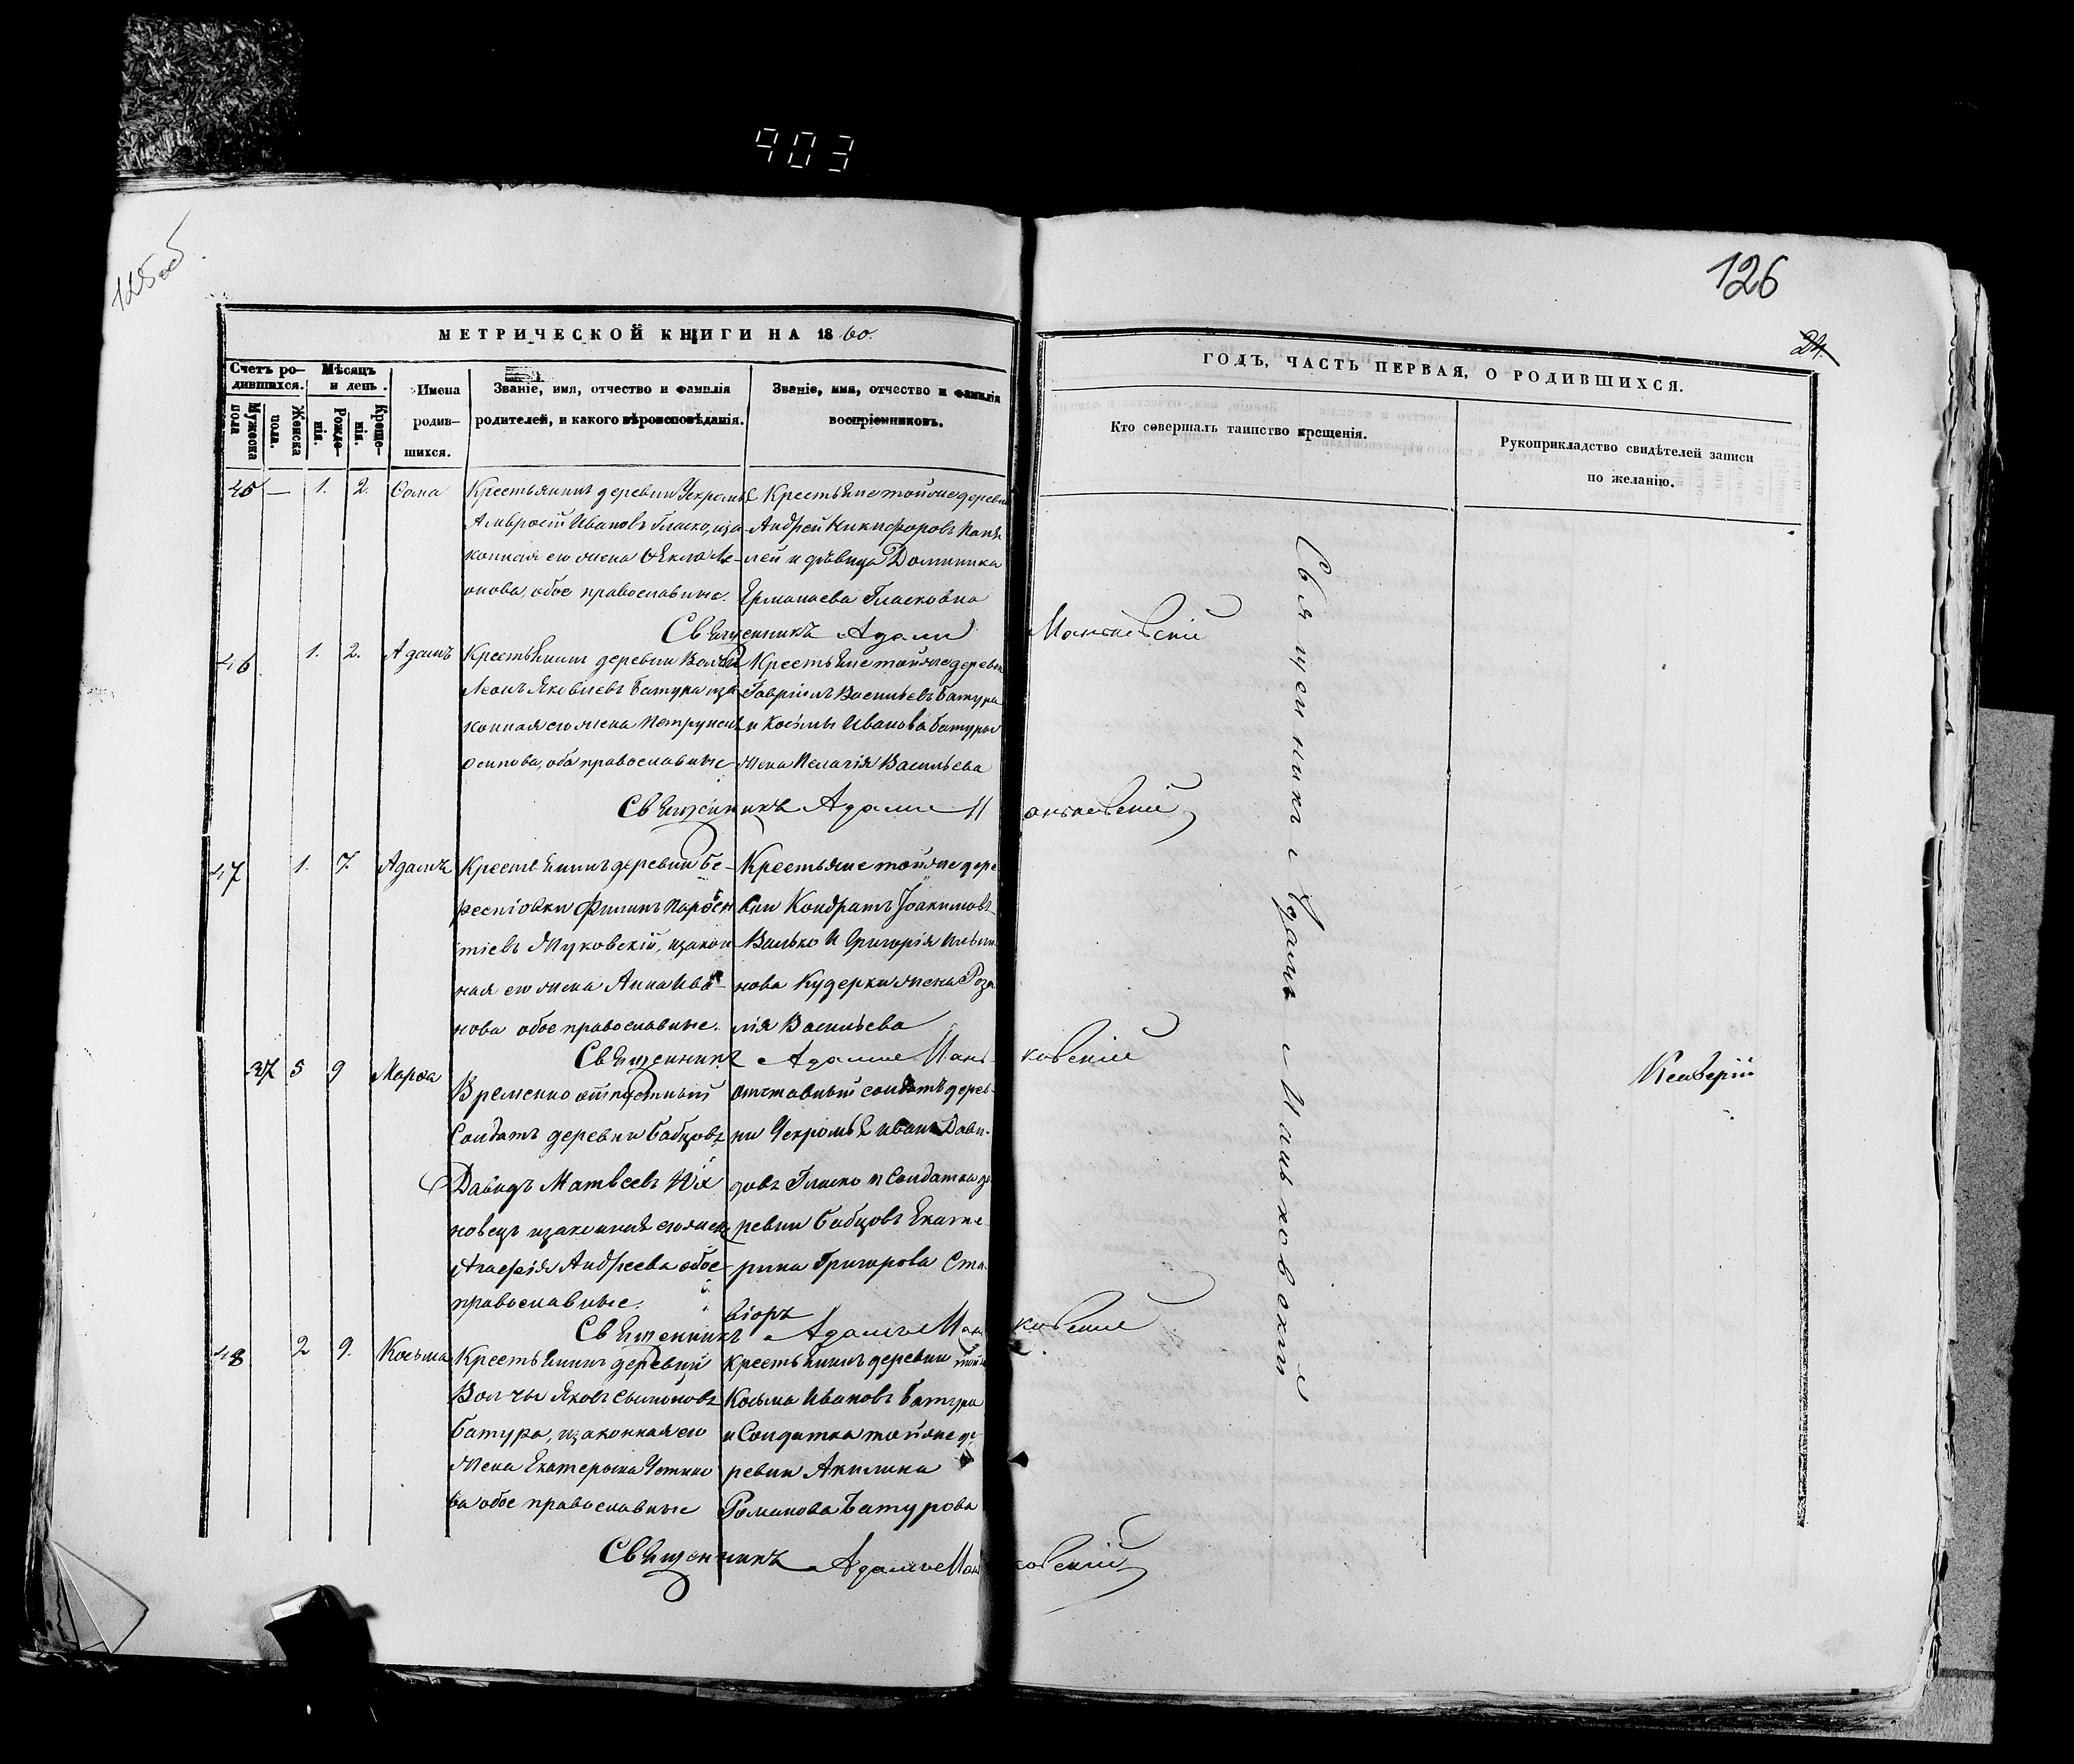 903
125 об.
126
24
МЕТРИЧЕСКОЙ КНИГИ НА 1860.
ГОДЪ, ЧАСТЬ ПЕРВАЯ, О РОДИВШИХСЯ.
Счетъ ро-
дившихся.
Мужеска
пола
Женска
пола.
Мѣсяцъ
и день.
Рожде-
нія.
Креще-
нія.
Имена
родив-
шихся.
Званіе, имя, отчество и фамилія
родителей, и какого вѣроисповѣданія.
Званіе, имя, отчество и фамилія
воспріемниковъ.
Кто совершалъ таинство крещенія.
Рукоприкладство свидѣтелей записи
по желанію.
45 — 1. 2. Ѳома
Крестьянинъ деревни
Амвросій Ивановъ Гласко, и за
конная его жена Ѳекла Ле-
онова, обое православные.
Крестьяне тойже деревни
Андрей Никифоровъ
лей и дѣвица Доминика
Ермолаева Гласковна
Священникъ Адамъ Маньковскій
46 1. 2. Адамъ
Крестьянинъ деревни Волчи
Леонъ Яковлевъ Батура и за
конная его жена
Осипова, оба православные
Крестьяне тойже деревни
Гавріилъ Васильевъ Батура
и Косьмы Иванова Батуры
жена Пелагія Васильева
Священникъ Адамъ Маньковскій
47 1. 7. Адамъ
Крестьянинъ деревни Бе-
рестовки Филипъ
тіевъ Жуковскій, и закон
ная его жена Анна Ива-
нова обое православные.
Крестьяне тойже дере
вни Кондратъ Іоакимовъ
Валько и Григорія
нова Кудерки жена Роза
лія Васильева
Священникъ Адамъ Маньковскій
37 5 9 Марѳа
Временно отпускный
Солдатъ деревни Бабцовъ
Давидъ Матвеевъ
новецъ и законная его жена
Агафія Андреева обое
православные.
Отставный солдатъ дерев-
ни Иванъ Дави-
довъ Гласко и Солдатка де
ревни Бабцовъ Екате-
рина Григорова Ста-
віоръ
Священникъ Адамъ Маньковскій
48 2 9. Косьма
Крестьянинъ деревни
Волчи Яковъ
Батура, и законная его
жена Екатерина
ва обое православные
Крестьянинъ деревни тойже
Косьма Ивановъ Батура
и Солдатка тойже де-
ревни Акилина
Романова Батурова
Священникъ Адамъ Маньковскій
Священникъ Адамъ Маньковскій